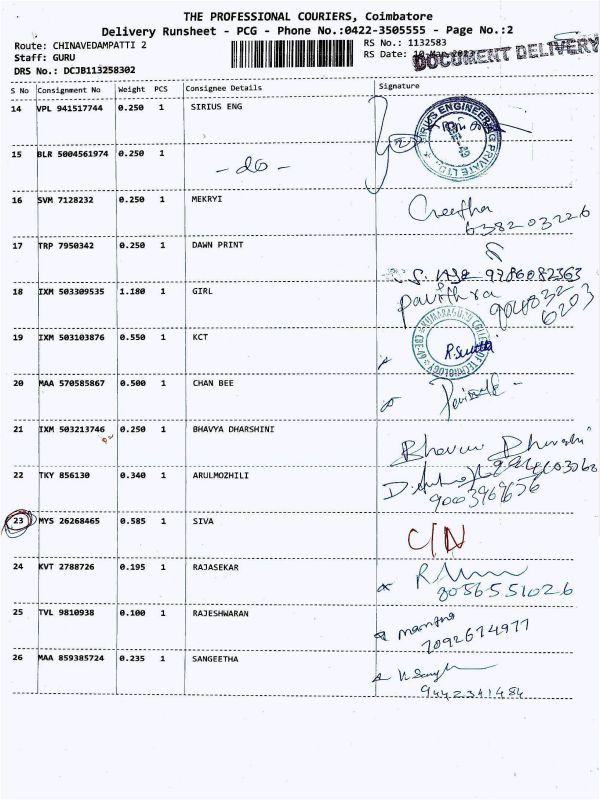 THE PROFESSIONAL COURIERS, Coimbatore
Delivery Runsheet - PCG - Phone No.:0422-3505555 - Page No.:2
Route: CHINAVEDAMPATTI 2
RS No.: 1132583
Staff: GURU
RS Date: 10-Mar-2023
DOCUMENT DELIVERY
DRS No.: DCJB113258302
S No Consignment No Weight PCS Consignee Details Signature
14 VPL 941517744 0.250 1 SIRIUS ENG
SIRIUS ENGINEERING PRIVATE LTD.
15 BLR 5004561974 0.250 1 - do -
16 SVM 7128232 0.250 1 MEKRYI Creetha
638203226
17 TRP 7950342 0.250 1 DAWN PRINT
9786082363
18 IXM 503309535 1.180 1 GIRL Pavithra
904832
6203
19 IXM 503103876 0.550 1 KCT
KUMARAGURU COLLEGE OF TECHNOLOGY
20 MAA 570585867 0.500 1 CHAN BEE
21 IXM 503213746 0.250 1 BHAVYA DHARSHINI
Dharshi
22 TKY 856130 0.340 1 ARULMOZHILI
9003969676
23 MYS 26268465 0.585 1 SIVA C/N
24 KVT 2788726 0.195 1 RAJASEKAR
8056551026
25 TVL 9810938 0.100 1 RAJESHWARAN mantha
7092674977
26 MAA 859385724 0.235 1 SANGEETHA K Sangh
9442341484